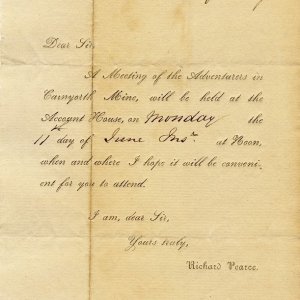 Dear Sir,
A Meeting of the Adventurers in
Carnyorth Mine, will be held at the
Account House, on Monday the
11th day of June Inst. at Noon,
when and where I hope it will be conveni-
ent for you to attend.
I am, dear Sir,
Yours truly,
Richard Pearce.